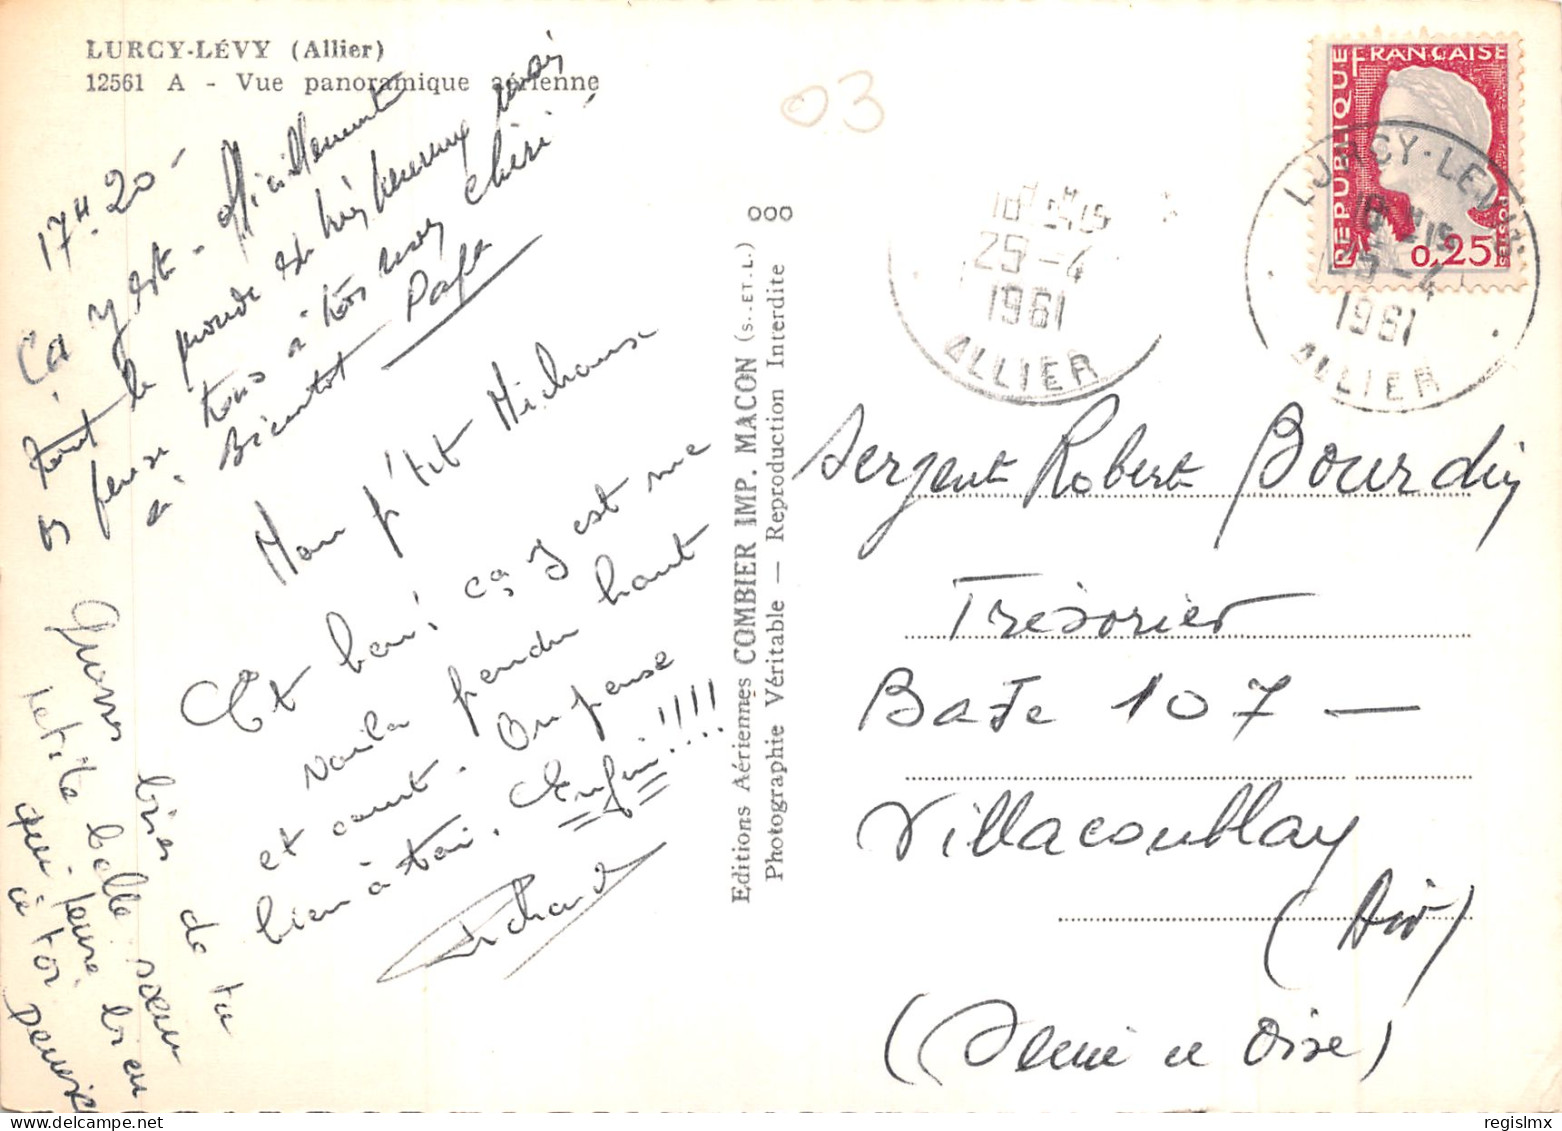 LURCY-LÉVY (Allier)
12561 A - Vue panoramique aérienne
17H 20 -
Ça y est - officiellement
tout le monde est très heureux mais
on pense tous à toi mon chéri
à Bientot Papa
Mon p'tit Michou
Et ben! ça y est me
voila pendu haut
et court. On pense
bien à toi. Enfin!!!!
Richard
Grosses bises de ta
petite belle sœur
qui pense bien
à toi
Denise
Editions Aériennes COMBIER IMP. MACON (S. ET L.)
Photographie Véritable — Reproduction Interdite
03
REPUBLIQUE FRANÇAISE
POSTES
0,25F
LURCY-LEVY
18H15
25-4
1961
ALLIER
18H15
25-4
1961
ALLIER
Sergent Robert Bourdin
Trésorier
Base 107 —
Villacoublay
(Air)
(Seine et Oise)
regislmx